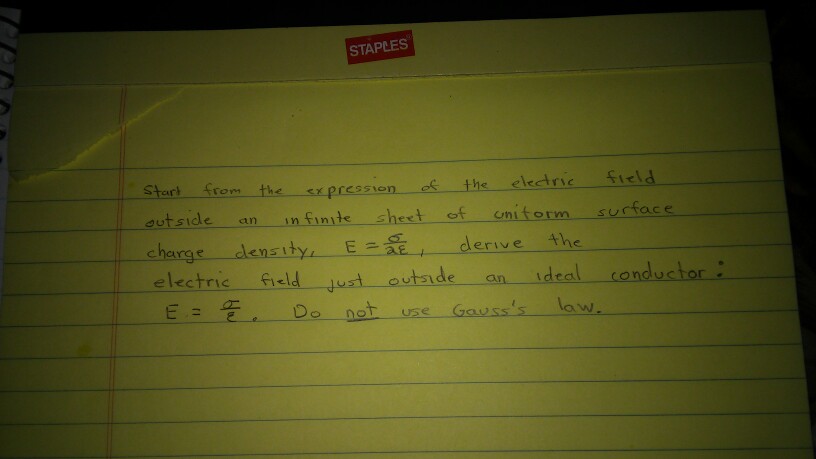 STAPLES
Start from the expression of the electric field
outside an infinite sheet of uniform surface
charge density, E = σ/2ε, derive the
electric field just outside an ideal conductor:
E = σ/ε. Do not use Gauss's law.